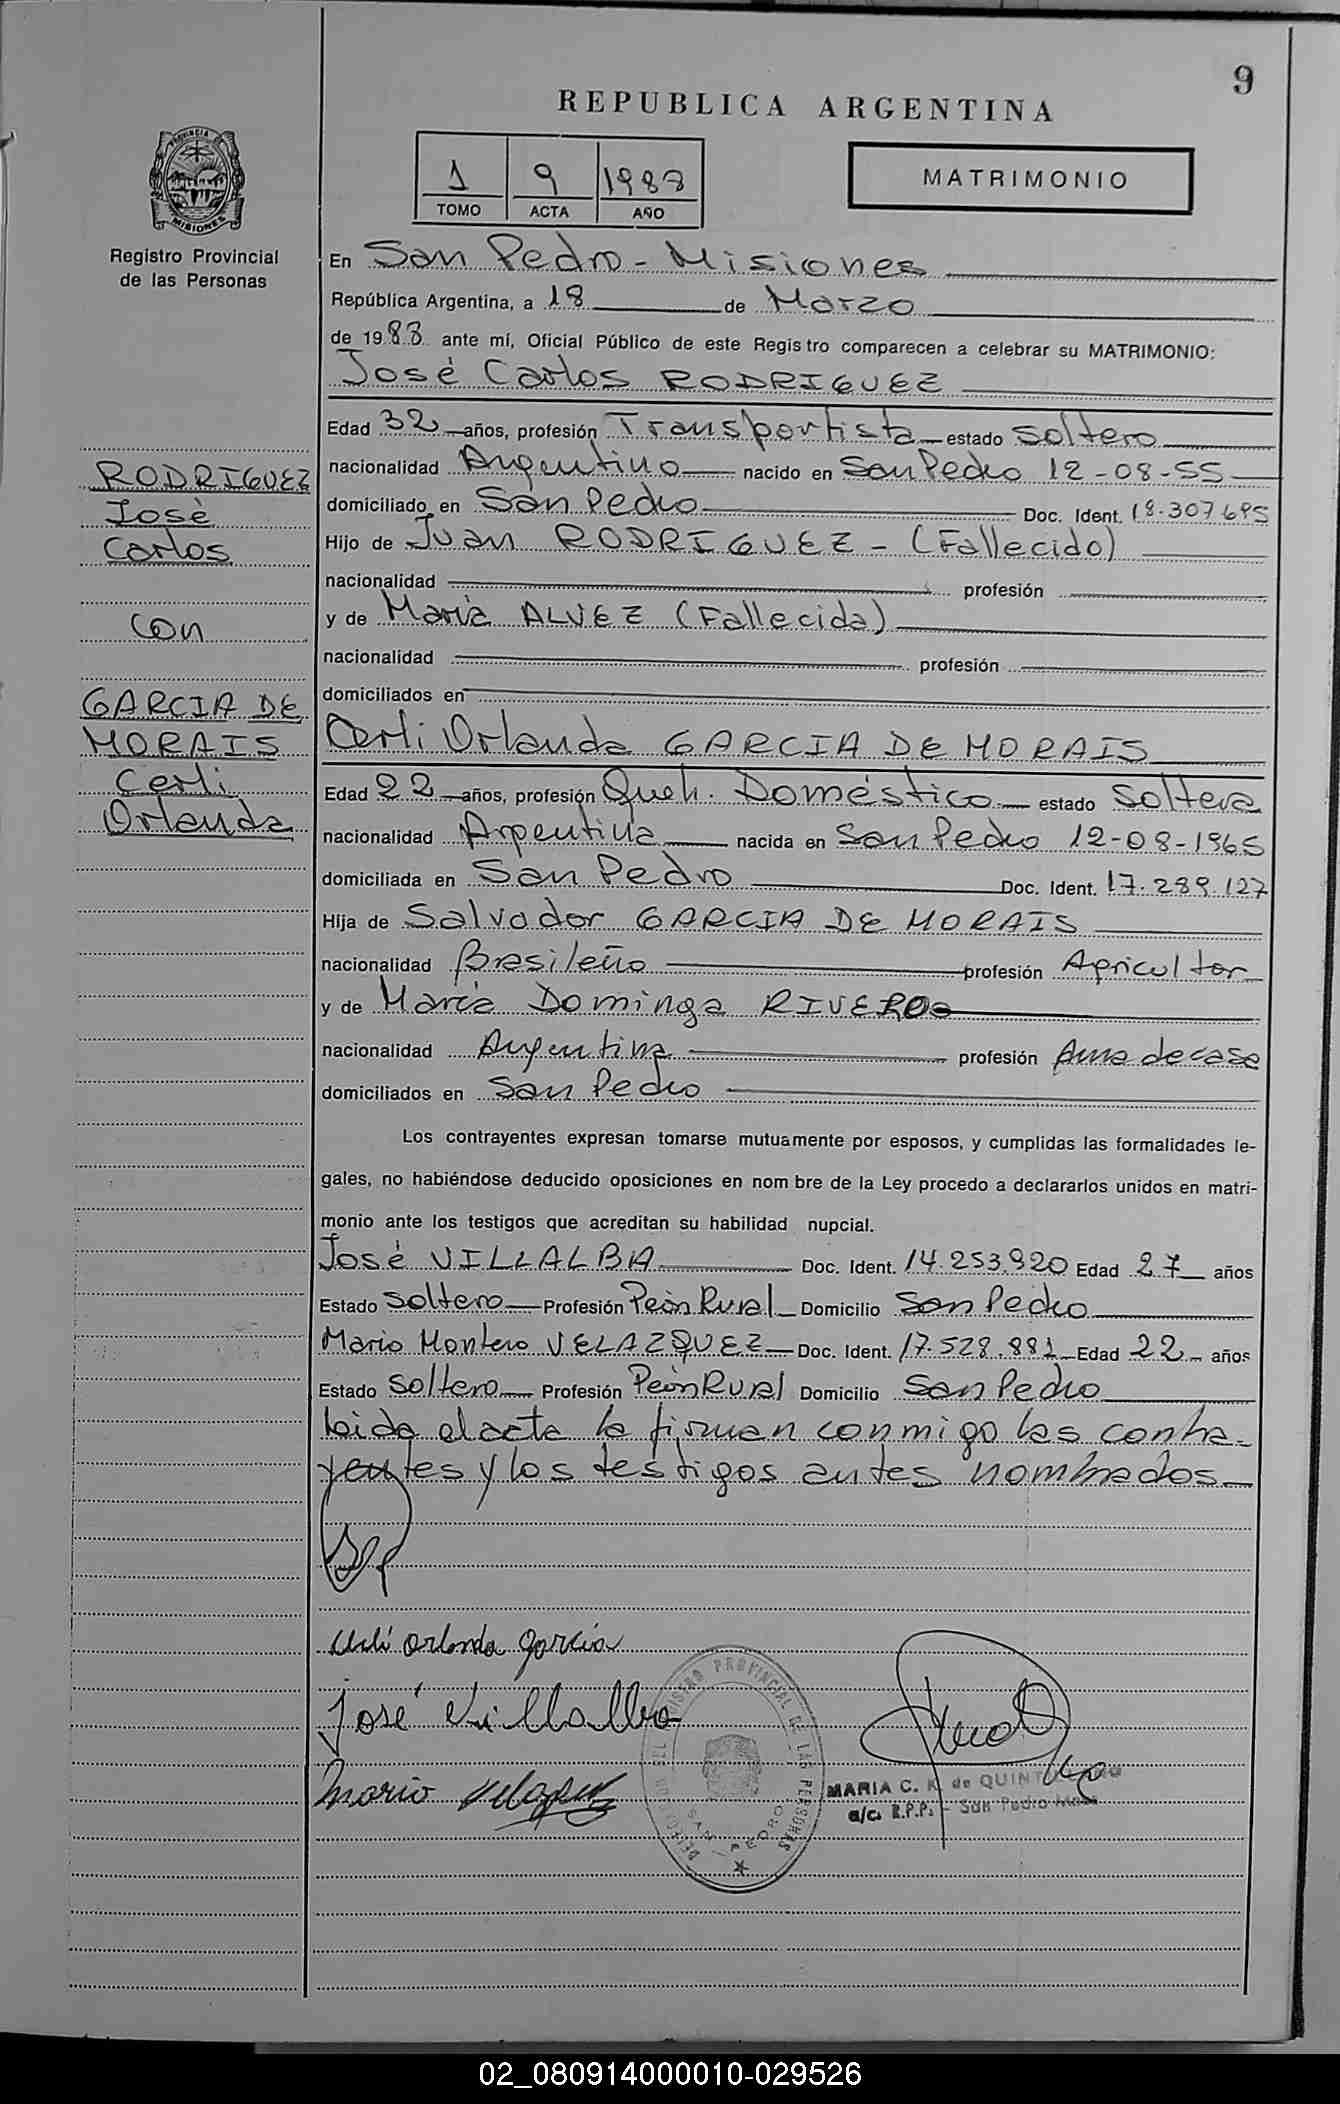 9
REPUBLICA ARGENTINA
1 9 1988
TOMO ACTA AÑO
MATRIMONIO
PROVINCIA DE MISIONES
Registro Provincial
de las Personas
En San Pedro - Misiones
República Argentina, a 18 de Marzo
de 1988 ante mí, Oficial Público de este Registro comparecen a celebrar su MATRIMONIO:
José Carlos RODRIGUEZ
Edad 32 años, profesión Transportista estado Soltero
nacionalidad Argentino nacido en San Pedro 12-08-55
domiciliado en San Pedro Doc. Ident. 18.307.695
Hijo de Juan RODRIGUEZ - (Fallecido)
nacionalidad profesión
y de María ALVEZ (Fallecida)
nacionalidad profesión
domiciliados en
Cerli Orlanda GARCIA DE MORAIS
Edad 22 años, profesión Queh. Doméstico estado Soltera
nacionalidad Argentina nacida en San Pedro 12-08-1965
domiciliada en San Pedro Doc. Ident. 17.289.127
Hija de Salvador GARCIA DE MORAIS
nacionalidad Brasileño profesión Agricultor
y de María Dominga RIVERO
nacionalidad Argentina profesión Ama de casa
domiciliados en San Pedro
Los contrayentes expresan tomarse mutuamente por esposos, y cumplidas las formalidades le-
gales, no habiéndose deducido oposiciones en nombre de la Ley procedo a declararlos unidos en matri-
monio ante los testigos que acreditan su habilidad nupcial.
José VILLALBA Doc. Ident. 14.253.920 Edad 27 años
Estado Soltero Profesión Peón Rural Domicilio San Pedro
Mario Montero VELAZQUEZ Doc. Ident. 17.528.881 Edad 22 años
Estado Soltero Profesión Peón Rural Domicilio San Pedro
Leida el acta la firman conmigo los contra-
yentes y los testigos antes nombrados
RODRIGUEZ
José
Carlos
con
GARCIA DE
MORAIS
Cerli
Orlanda
Cerli Orlanda Garcia
José Villalba
Mario Velazquez
REGISTRO PROVINCIAL DE LAS PERSONAS
SAN PEDRO
MARIA C. K. de
a/c. R.P.P. - San Pedro Mnes
02_080914000010-029526